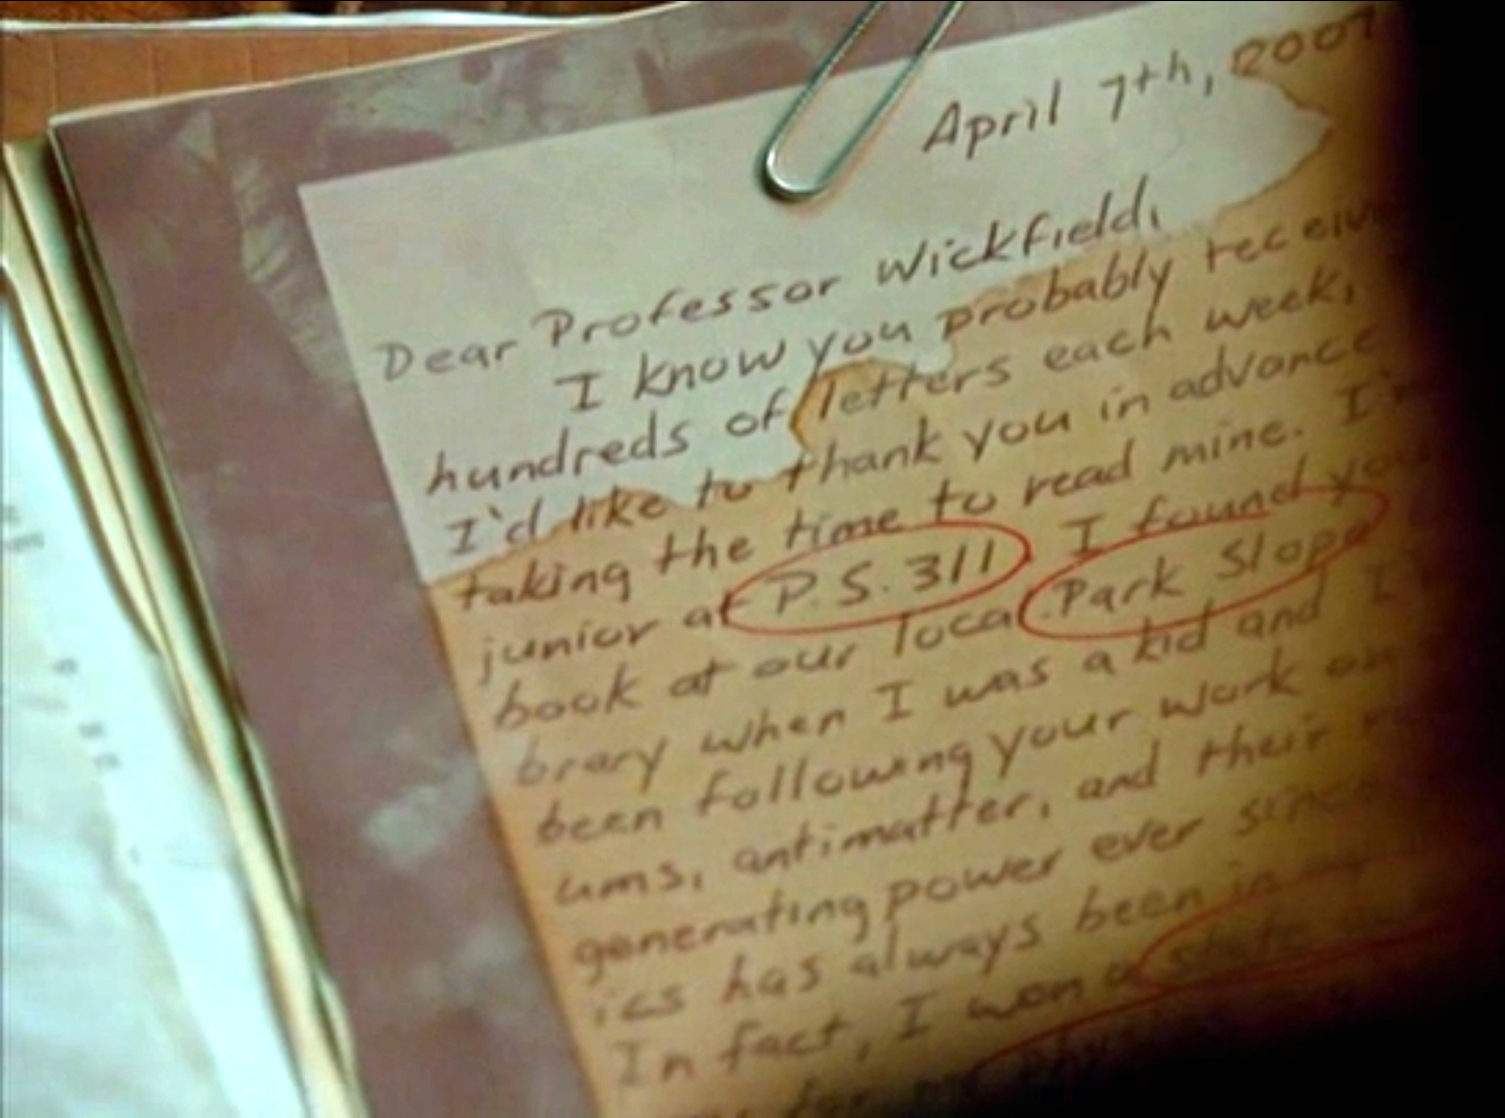 April 7th, 2007
Dear Professor Wickfield,
I know you probably receive
hundreds of letters each week,
I'd like to thank you in advance
taking the time to read mine. I'm
junior at P.S. 311. I found you
book at our local Park Slope
brary when I was a kid and I
been following your work on
ums, antimatter, and their
generating power ever since
ics has always been in my
In fact, I won a state
for my phy